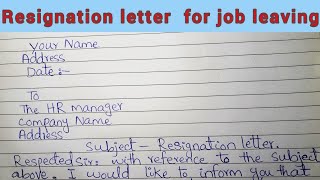 Resignation letter for job leaving
Your Name
Address
Date :-
To
The HR manager
Company Name
Address
Subject - Resignation letter.
Respected sir, with reference to the subject
above. I would like to inform you that